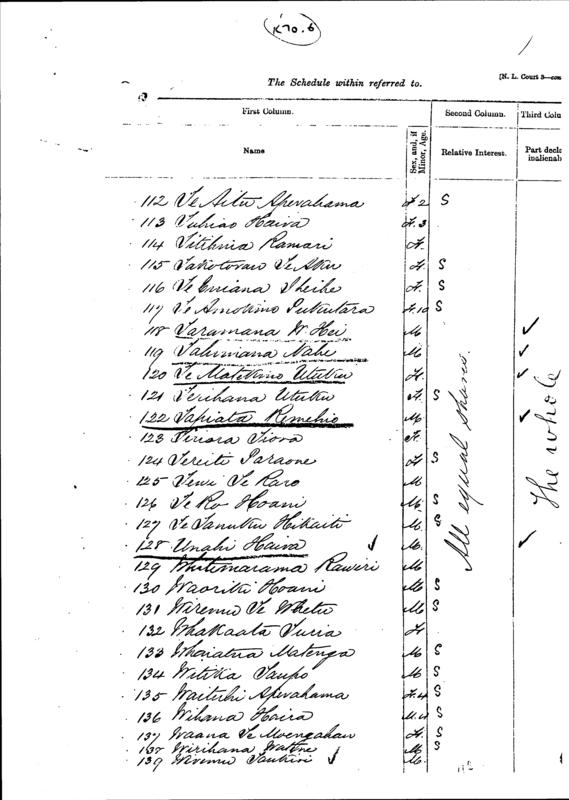 K70.6
[N. L. Court 3—con
The Schedule within referred to.
First Column. Second Column. Third Colu
Name Sex, and, if Minor, Age. Relative Interest. Part decla inalienab
112 Te Aitu Aperahama F 2 S
113 Tuhiao Haira F. 3
114 Titihuia Ramari F.
115 Takotorau Te Aku F. S
116 Te Euriana Iheihe F. S
117 Te Amokimo Pukutara F. 10 S
118 Taramana W. Hei M ✓
119 Tahumana Nahe M ✓
120 Te Matekino Utuku F. ✓
121 Terihana Utuku F. S
122 Tapiata Remehio M ✓
123 Tiriora Tiora F.
124 Tereiti Paraone F S
125 Tewi Te Karo M
126 Te Ro Hoani M. S
127 Te Tanuku Hikaiti M S
128 Unahi Haira ✓ M. ✓
129 Whitimarama Raweri M
130 Waoriki Hoani M S
131 Wiremu Te Whetu M S
132 Whakaata Turia F.
133 Whaiatua Matenga M S
134 Witika Taupo M S
135 Waituhi Aperahama F. 4 S
136 Wihana Haira M. 4 S
137 Waana Te Moengahau F. S
138 Wirihana M S
139 Wiremu ✓ M.
All equal shares
The whole